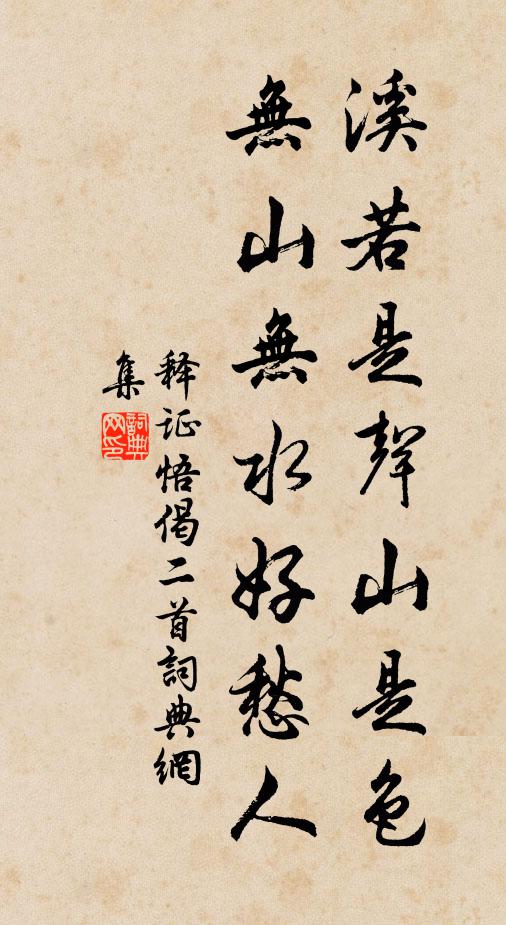 溪若是聲山是色
無山無水好愁人
释证悟偈二首詞典網
集
詞典
网印